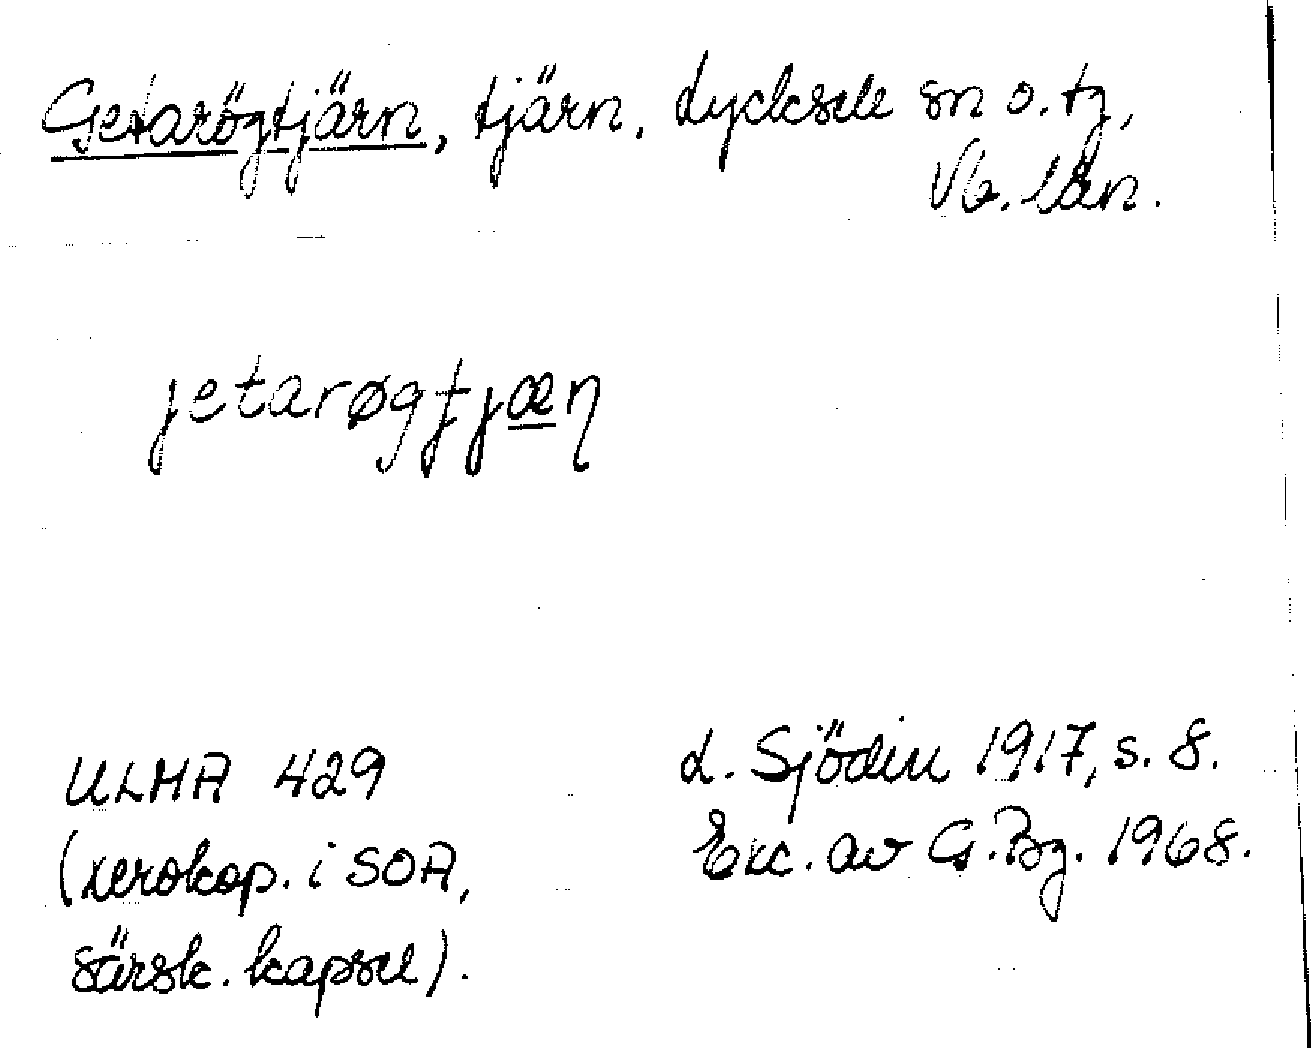 Getarögtjärn, tjärn, Lycksele sn o. tg,
Vb. län.
jetarøgtjæn
ULMA 429
(xerokop. i SOA,
särsk. kapsel).
L. Sjödin 1917, s. 8.
Exc. av G. Bg. 1968.